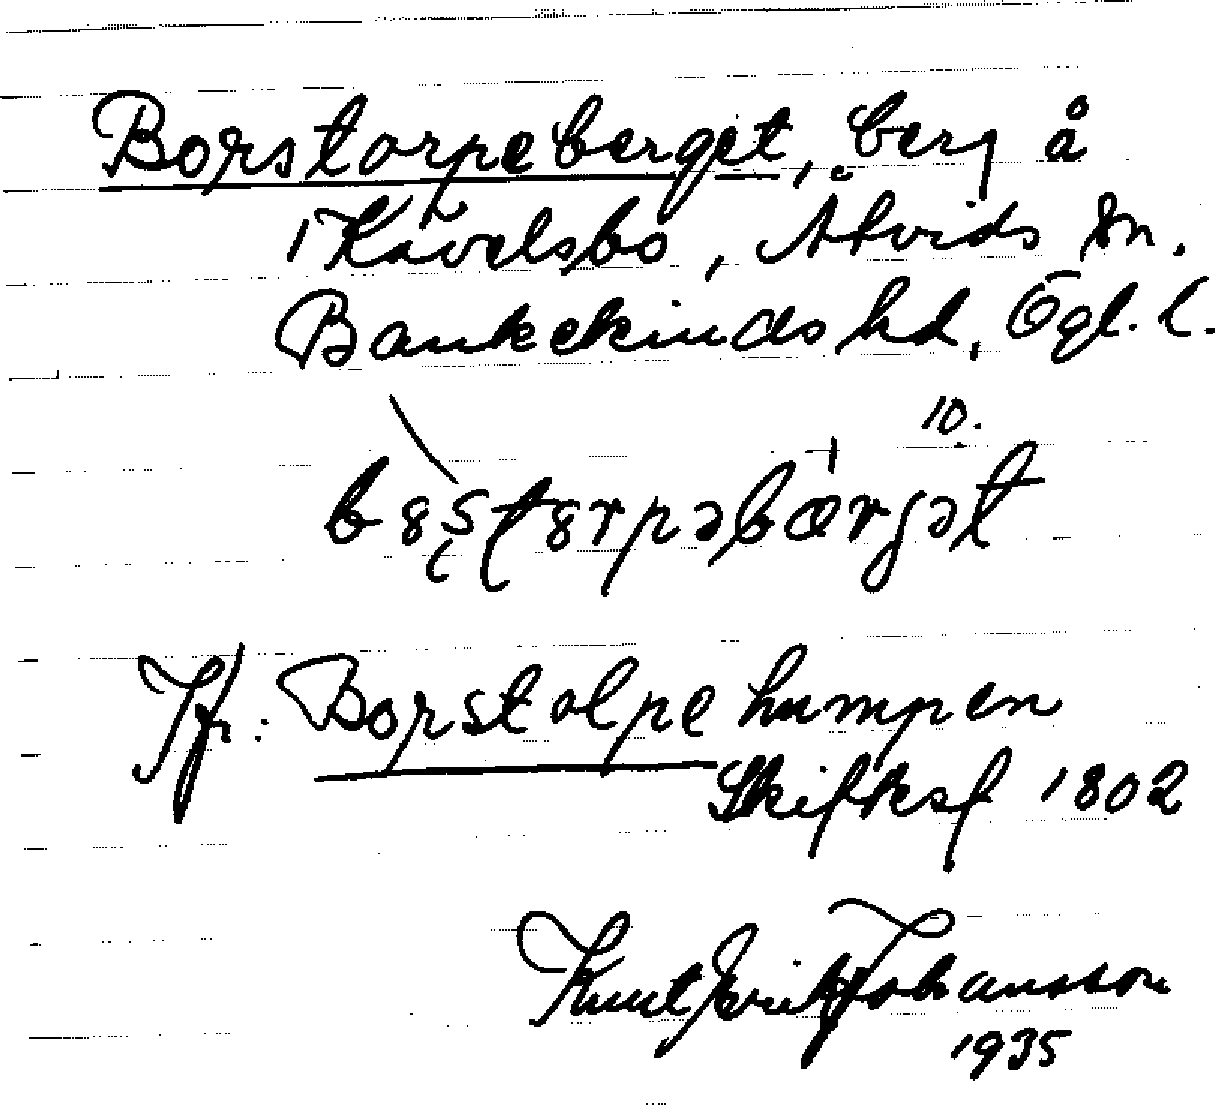 Borstorpeberget, berg å
1 Kåvelsbo, Åtvids sn.
Bankekinds hd, Ögl. l.
10.
Jfr: Borstolpehumpen
Skifksf 1802
Knut Erik Johansson
1935